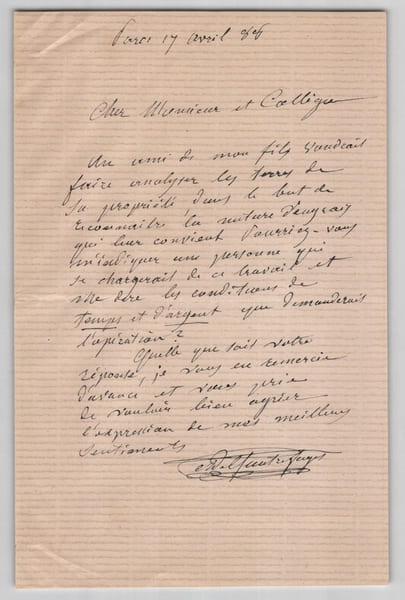 Paris 17 avril 88
Cher Monsieur et Collègue
Un ami de mon fils voudrait
faire analyser les terres de
sa propriété dans le but de
reconnaitre la nature d'engrais
qui leur convient Pourriez-vous
m'indiquer une personne qui
se chargerait de ce travail et
me dire les conditions de
temps et d'argent que demanderait
l'opération?
Quelle que soit votre
réponse, je vous en remercie
d'avance et vous prie
de vouloir bien agréer
l'expression de mes meilleurs
Sentiments